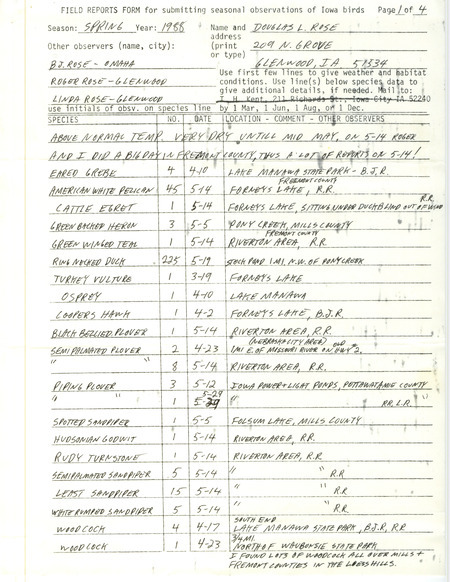 FIELD REPORTS FORM for submitting seasonal observations of Iowa birds Page 1 of 4
Season: SPRING Year: 1988 Name and DOUGLAS L. ROSE
address
Other observers (name, city): (print 209 N. GROVE
or type) GLENWOOD, IA 51534
B.J. ROSE - OMAHA
ROGER ROSE - GLENWOOD
LINDA ROSE - GLENWOOD
Use first few lines to give weather and habitat
conditions. Use line(s) below species data to
give additional details, if needed. Mail to:
T. H. Kent, 211 Richards St., Iowa City IA 52240
use initials of obsv. on species line by 1 Mar, 1 Jun, 1 Aug, or 1 Dec.
SPECIES NO. DATE LOCATION - COMMENT - OTHER OBSERVERS
ABOVE NORMAL TEMP. VERY DRY UNTILL MID MAY, ON 5-14 ROGER
AND I DID A BIG DAY IN FREMONT COUNTY, THUS A LOT OF REPORTS ON 5-14!
EARED GREBE 4 4-10 LAKE MANAWA STATE PARK - B.J.R.
FREEMONT COUNTY
AMERICAN WHITE PELICAN 45 5-14 FORNEYS LAKE, R.R.
R.R.
CATTLE EGRET 1 5-14 FORNEYS LAKE, SITTING UNDER DUCK BLIND OUT OF WIND
GREEN BACKED HERON 3 5-5 PONY CREEK, MILLS COUNTY
FREMONT COUNTY
GREEN WINGED TEAL 1 5-14 RIVERTON AREA, R.R.
RING NECKED DUCK 225 5-19 POND 1 MI. N.W. OF PONY CREEK
TURKEY VULTURE 1 3-19 FORNEYS LAKE
OSPREY 1 4-10 LAKE MANAWA
COOPERS HAWK 1 4-2 FORNEYS LAKE, B.J.R.
BLACK BELLIED PLOVER 1 5-14 RIVERTON AREA, R.R.
(NEBRASKA CITY AREA) OLD
SEMIPALMATED PLOVER 2 4-23 1 MI E. OF MISSOURI RIVER ON HWY 2.
" " 8 5-14 RIVERTON AREA, R.R.
PIPING PLOVER 3 5-12 IOWA POWER + LIGHT PONDS, POTTAWATAMIE COUNTY
5-29
" 1 5-29 " R.R. L.R. "
SPOTTED SANDPIPER 1 5-5 FOLSUM LAKE, MILLS COUNTY
HUDSONIAN GODWIT 1 5-14 RIVERTON AREA, R.R.
RUDY TURNSTONE 1 5-14 RIVERTON AREA, R.R.
SEMIPALMATED SANDPIPER 5 5-14 " " R.R
LEAST SANDPIPER 15 5-14 " " R.R
WHITE RUMPED SANDPIPER 5 5-14 " " R.R
SOUTH END
WOODCOCK 4 4-17 LAKE MANAWA STATE PARK, B.J.R, R.R
3/4 MI.
WOODCOCK 1 4-23 NORTH OF WAUBONSIE STATE PARK
I FOUND LOTS OF WOODCOCK ALL OVER MILLS +
FREMONT COUNTIES IN THE LOESS HILLS.